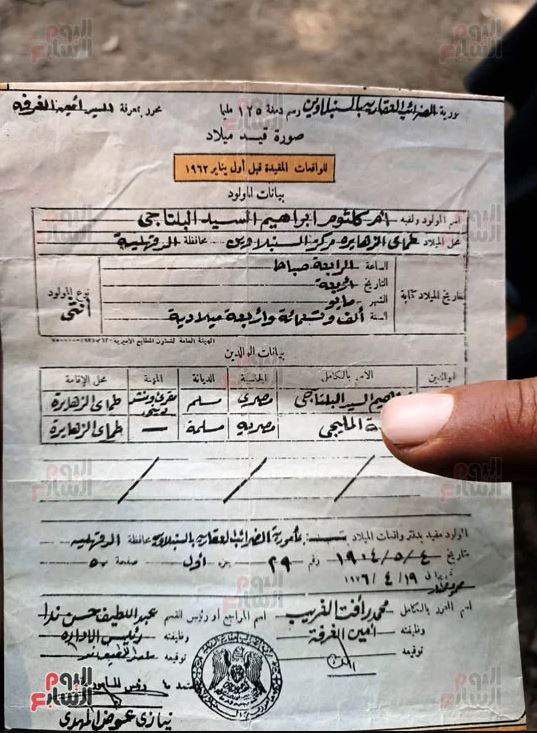 اليوم السابع
مأمورية الضرائب العقارية بالسنبلاوين رسم دمغة ١٢٥ مليما محرر بمعرفة السيد أمين الغرفة
صورة قيد ميلاد
للواقعات المقيدة قبل أول يناير ١٩٦٢
بيانات المولود
اسم المولود ولقبه أم كلثوم ابراهيم السيد البلتاجى
محل الميلاد طماى الزهايرة مركز السنبلاوين محافظة الدقهلية
تاريخ الميلاد كتابة
الساعة الرابعة صباحا
التاريخ أربعة
الشهر مايو
السنة ألف وتسعمائة وأربعة ميلادية
نوع المولود
أنثى
الهيئة العامة لشئون المطابع الأميرية
بيانات الوالدين
الوالدين الاسم بالكامل الجنسية الديانة المهنة محل الإقامة
ابراهيم السيد البلتاجى مصرى مسلم طماى الزهايرة
المليجى مصرية مسلمة — طماى الزهايرة
المولود مقيد بدفتر واقعات الميلاد بمأمورية الضرائب العقارية بالسنبلاوين محافظة الدقهلية
تاريخ ١٩٠٤/٥/٤ رقم ٢٩ جزء أول صفحة ٥٠
تحريرا فى ١٩٧٦/٤/١٩
اسم المحرر بالكامل محمد رأفت الغريب اسم المراجع أو رئيس القسم عبد اللطيف حسن ندا
وظيفته أمين الغرفة وظيفته رئيس الإدارة
توقيعه توقيعه
يعتمد رئيس المأمورية
نيازى عوض المهدى
اليوم السابع